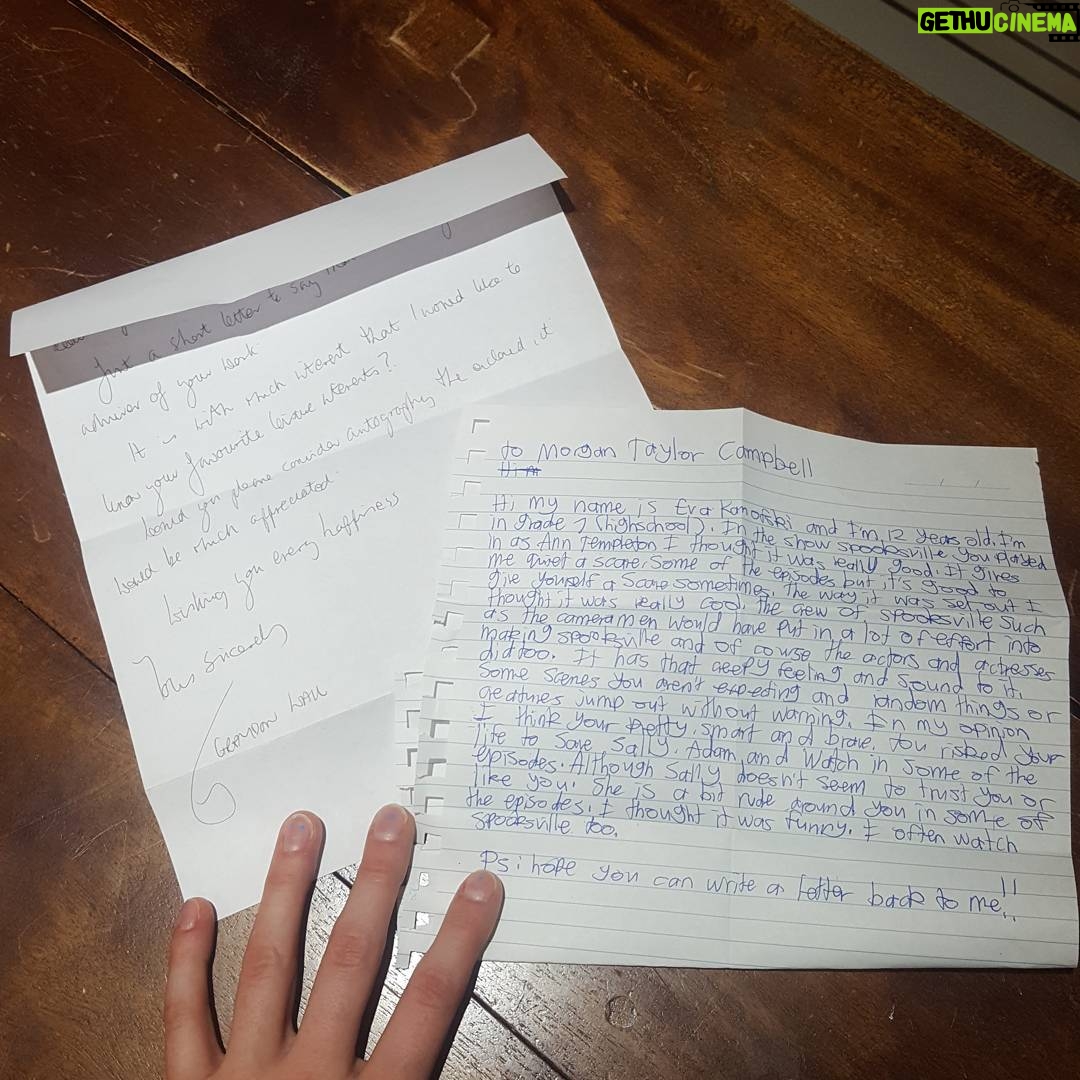 GETHUCINEMA
Just a short letter to say
admirer of your work
It is with much interest that I would like to
know your favourite leisure interests?
Would you please consider autographing the enclosed, it
would be much appreciated
Wishing you every happiness
Yours sincerely
to Morgan Taylor Campbell
Hi my name is Eva Kanofski and I'm 12 years old. I'm
in grade 7 (highschool). In the show spooksville you played
in as Ann Templeton I thought it was really good. It gives
me quiet a scare. Some of the episodes but it's good to
give yourself a scare sometimes. The way it was set out I
thought it was really cool. The crew of spooksville such
as the cameramen would have put in a lot of effort into
making spooksville and of course the actors and actresses
did too. It has that creepy feeling and sound to it.
Some scenes you aren't expecting and random things or
creatures jump out without warning. In my opinion
I think your pretty, smart and brave. You risked your
life to save Sally, Adam, and Watch in some of the
episodes. Although Sally doesn't seem to trust you or
like you. She is a bit rude around you in some of
the episodes. I thought it was funny. I often watch
spooksville too.
Ps: hope you can write a letter back to me!!